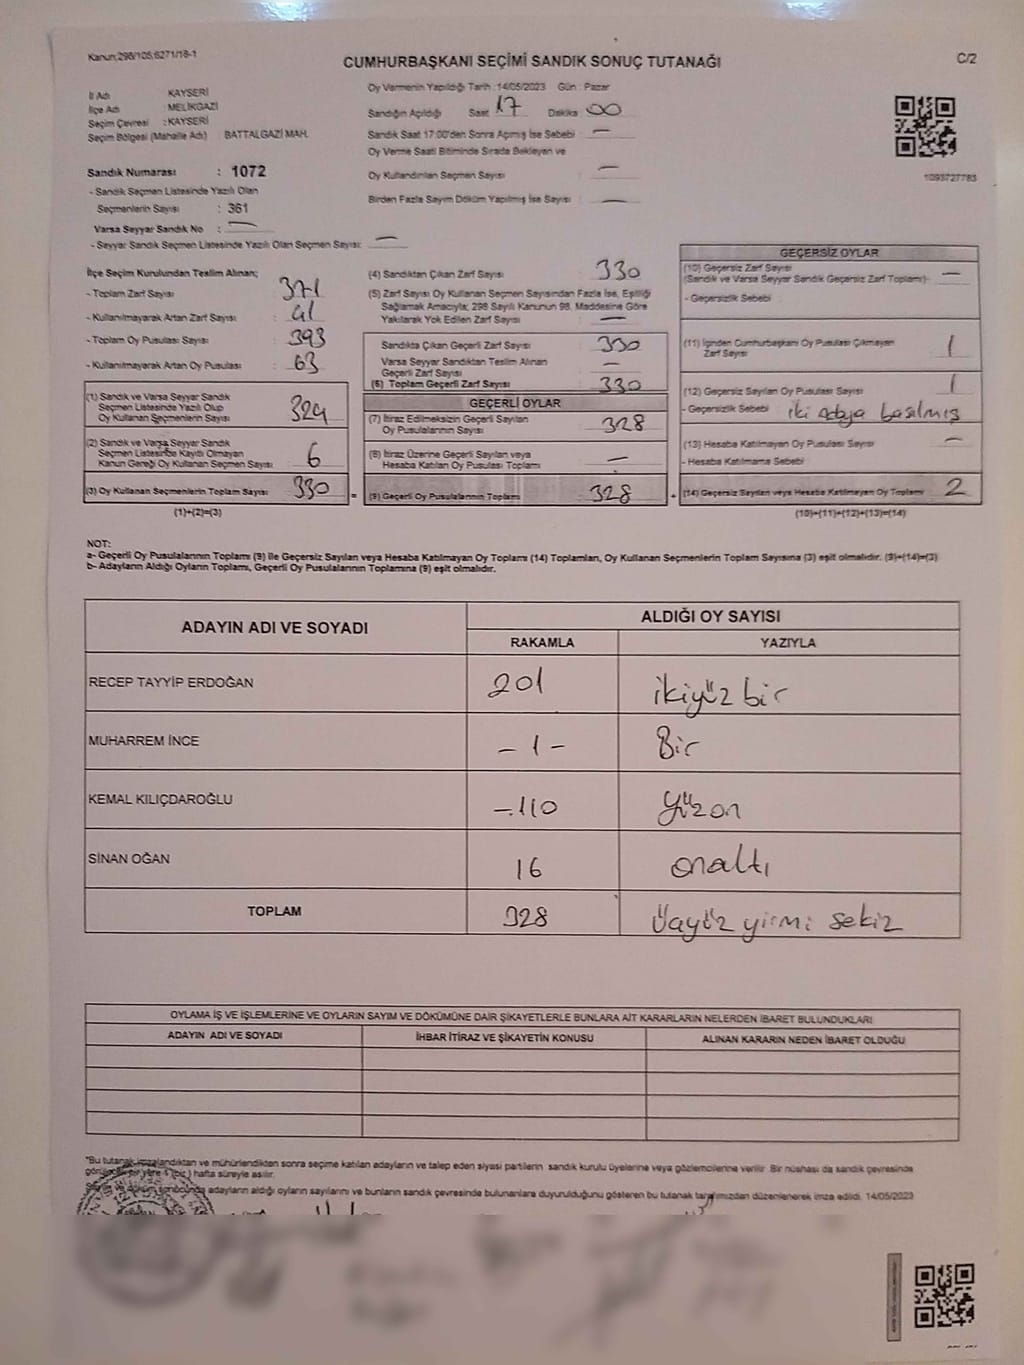 Kanun;298/105,6271/18-1
CUMHURBAŞKANI SEÇİMİ SANDIK SONUÇ TUTANAĞI
C/2
İl Adı KAYSERİ
İlçe Adı : MELİKGAZİ
Seçim Çevresi : KAYSERİ
Seçim Bölgesi (Mahalle Adı) : BATTALGAZİ MAH.
Sandık Numarası : 1072
- Sandık Seçmen Listesinde Yazılı Olan
Seçmenlerin Sayısı : 361
Varsa Seyyar Sandık No : —
- Seyyar Sandık Seçmen Listesinde Yazılı Olan Seçmen Sayısı: —
Oy Vermenin Yapıldığı Tarih : 14/05/2023 Gün : Pazar
Sandığın Açıldığı Saat 17 Dakika 00
Sandık Saat 17:00'den Sonra Açımış İse Sebebi : —
Oy Verme Saati Bitiminde Sırada Bekleyen ve
Oy Kullandırılan Seçmen Sayısı : —
Birden Fazla Sayım Döküm Yapılmış İse Sayısı : —
1093727783
İlçe Seçim Kurulundan Teslim Alınan;
- Toplam Zarf Sayısı : 371
- Kullanılmayarak Artan Zarf Sayısı : 41
- Toplam Oy Pusulası Sayısı : 393
- Kullanılmayarak Artan Oy Pusulası : 63
(1) Sandık ve Varsa Seyyar Sandık
Seçmen Listesinde Yazılı Olup
Oy Kullanan Seçmenlerin Sayısı 324
(2) Sandık ve Varsa Seyyar Sandık
Seçmen Listesinde Kayıtlı Olmayan
Kanun Gereği Oy Kullanan Seçmen Sayısı 6
(3) Oy Kullanan Seçmenlerin Toplam Sayısı 330
(1)+(2)=(3)
(4) Sandıktan Çıkan Zarf Sayısı : 330
(5) Zarf Sayısı Oy Kullanan Seçmen Sayısından Fazla İse, Eşitliği
Sağlamak Amacıyla; 298 Sayılı Kanunun 98. Maddesine Göre
Yakılarak Yok Edilen Zarf Sayısı : —
Sandıkta Çıkan Geçerli Zarf Sayısı : 330
Varsa Seyyar Sandıktan Teslim Alınan
Geçerli Zarf Sayısı : —
(6) Toplam Geçerli Zarf Sayısı : 330
GEÇERLİ OYLAR
(7) İtiraz Edilmeksizin Geçerli Sayılan
Oy Pusulalarının Sayısı : 328
(8) İtiraz Üzerine Geçerli Sayılan veya
Hesaba Katılan Oy Pusulası Toplamı : —
= (9) Geçerli Oy Pusulalarının Toplamı : 328 +
GEÇERSİZ OYLAR
(10) Geçersiz Zarf Sayısı
(Sandık ve Varsa Seyyar Sandık Geçersiz Zarf Toplamı) : —
- Geçersizlik Sebebi :
(11) İçinden Cumhurbaşkanı Oy Pusulası Çıkmayan
Zarf Sayısı 1
(12) Geçersiz Sayılan Oy Pusulası Sayısı : 1
- Geçersizlik Sebebi iki adaya basılmış
(13) Hesaba Katılmayan Oy Pusulası Sayısı : —
- Hesaba Katılmama Sebebi
(14) Geçersiz Sayılan veya Hesaba Katılmayan Oy Toplamı : 2
(10)+(11)+(12)+(13)=(14)
NOT:
a- Geçerli Oy Pusulalarının Toplamı (9) İle Geçersiz Sayılan veya Hesaba Katılmayan Oy Toplamı (14) Toplamları, Oy Kullanan Seçmenlerin Toplam Sayısına (3) eşit olmalıdır. (9)+(14)=(3)
b- Adayların Aldığı Oyların Toplamı, Geçerli Oy Pusulalarının Toplamına (9) eşit olmalıdır.
ADAYIN ADI VE SOYADI
ALDIĞI OY SAYISI
RAKAMLA YAZIYLA
RECEP TAYYİP ERDOĞAN 201 ikiyüz bir
MUHARREM İNCE - 1 - Bir
KEMAL KILIÇDAROĞLU -.110 yüzon
SİNAN OĞAN 16 onaltı
TOPLAM 328 Üçyüz yirmi sekiz
OYLAMA İŞ VE İŞLEMLERİNE VE OYLARIN SAYIM VE DÖKÜMÜNE DAİR ŞİKAYETLERLE BUNLARA AİT KARARLARIN NELERDEN İBARET BULUNDUKLARI
ADAYIN ADI VE SOYADI İHBAR İTİRAZ VE ŞİKAYETİN KONUSU ALINAN KARARIN NEDEN İBARET OLDUĞU
"Bu tutanak imzalandıktan ve mühürlendikten sonra seçime katılan adayların ve talep eden siyasi partilerin sandık kurulu üyelerine veya gözlemcilerine verilir. Bir nüshası da sandık çevresinde
görülecek bir yere 1 (bir) hafta süreyle asılır.
Sayım ve döküm sonucunda adayların aldığı oyların sayılarını ve bunların sandık çevresinde bulunanlara duyurulduğunu gösteren bu tutanak tarafımızdan düzenlenerek imza edildi. 14/05/2023